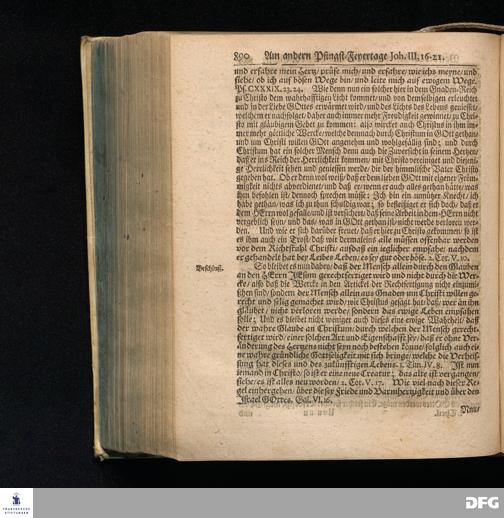 890 Am andern Pfingst-Feyertage Joh. III. 16-21.
und erfahre mein Hertz/ prüfe mich/ und erfahre/ wie ichs meyne/ und
siehe/ ob ich auf bösen Wege bin/ und leite mich auf ewigem Wege.
Ps. CXXXIX. 23. 24. Wie denn nun ein solcher hier in dem Gnaden-Reich
zu Christo dem wahrhafftigen Licht kommet/ und von demselbigen erleuchtet
und in der Liebe GOttes erwärmet wird/ und des Lichts des Lebens geniesset/
welchem er nachfolget/ daher auch immer mehr Freudigkeit gewinnet/ zu Chri-
sto mit gläubigem Gebet zu kommen: also würcket auch Christus in ihm im-
mer mehr göttliche Wercke/ welche dennoch durch Christum in GOtt gethan/
und um Christi willen GOtt angenehm und wohlgefällig sind; und durch
Christum hat ein solcher Mensch denn auch die Zuversicht in seinem Hertzen/
daß er ins Reich der Herrlichkeit kommen/ mit Christo vereiniget und diejeni-
ge Herrlichkeit sehen und geniessen werde/ die der himmlische Vater Christo
gegeben hat. Ob er denn wol weiß/ daß er dem lieben GOtt mit eigener Fröm-
migkeit nichts abverdienet/ und daß er/ wenn er auch alles gethan hätte/ was
ihm befohlen ist/ dennoch sprechen müsse: Ich bin ein unnützer Knecht/ ich
habe gethan/ was ich zu thun schuldig war; so befleissiget er sich doch/ daß er
dem HErrn wol gefalle/ und ist versichert/ daß seine Arbeit in dem HErrn nicht
vergeblich seyn/ und das/ was in GOtt gethan ist/ nicht werde verloren wer-
den. Und wie er sich darüber freuet/ daß er hier zu Christo gekommen/ so ist
es ihm auch ein Trost/ daß wir dermaleins alle müssen offenbar werden
vor dem Richtstuhl Christi/ aufdaß ein ieglicher empfahe/ nachdem
er gehandelt hat bey Leibes Leben/ es sey gut oder böse. 2. Cor. V, 10.
Beschluß.
So bleibet es nun dabey/ daß der Mensch allein durch den Glauben
an den HErrn JEsum gerechtfertiget wird und nicht durch die Wer-
cke/ also daß die Wercke in den Articul der Rechtfertigung nicht einzumi-
schen sind/ sondern der Mensch allein aus Gnaden um Christi willen ge-
recht und selig gemachet wird/ wie Christus gesagt hat/ daß/ wer an ihn
gläubet/ nicht verloren werde/ sondern das ewige Leben empfahen
solle; Und es bleibet nicht weniger auch dieses eine ewige Wahrheit/ daß
der wahre Glaube an Christum/ durch welchen der Mensch gerecht-
fertiget wird/ einer solchen Art und Eigenschafft sey/ daß er ohne Ver-
änderung des Hertzens nicht seyn noch bestehen könne/ folglich auch ei-
ne wahre gründliche Gottseligkeit mit sich bringe/ welche die Verheis-
sung hat dieses und des zukünfftigen Lebens. 1. Tim. IV. 8. Ist nun
iemand in Christo/ so ist er eine neue Creatur; das alte ist vergangen/
siehe/ es ist alles neu worden/ 2. Cor. V. 17. Wie viel nach dieser Re-
gel einhergehen/ über die sey Friede und Barmhertzigkeit und über den
Israel GOttes. Gal. VI. 16.
Nun/
FRANCKESCHE
STIFTUNGEN
DFG